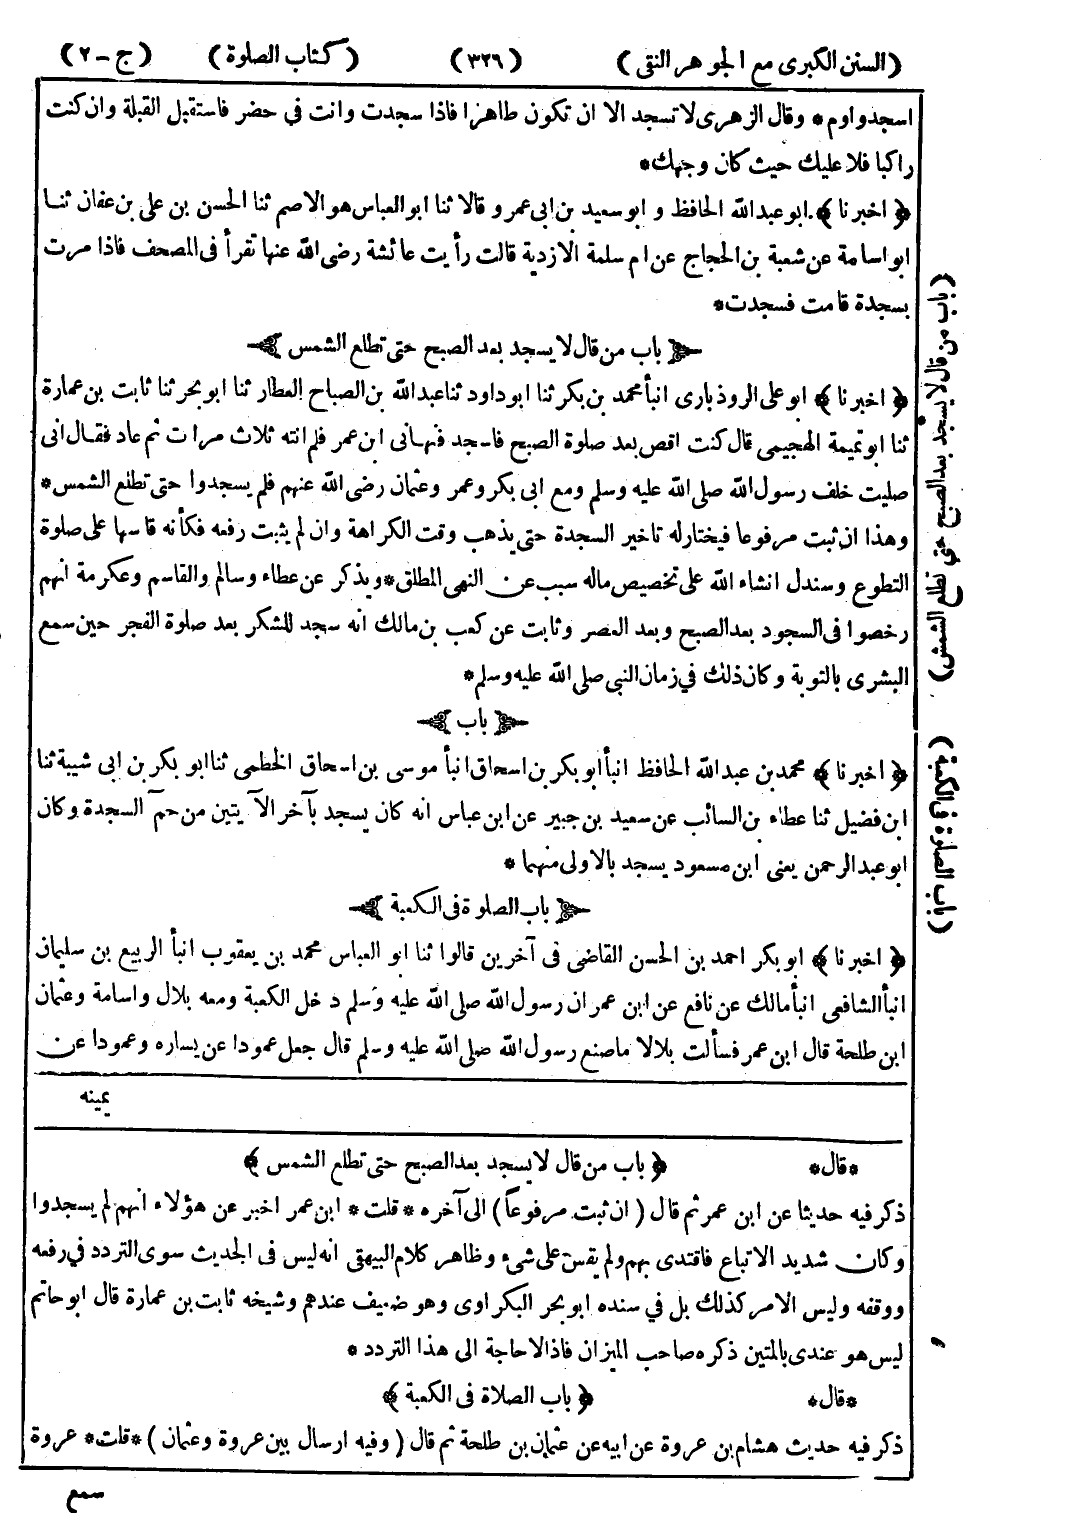 (السنن الكبرى مع الجوهر النقى) (٣٢٦) (كتاب الصلوة) (ج-٢)
اسجدوا وم * وقال الزهرى لا تسجد الا ان تكون طاهرا فاذا سجدت وانت في حضر فاستقبل القبلة وان كنت
راكبا فلا عليك حيث كان وجهك *
﴿ اخبرنا ﴾ ابو عبد الله الحافظ و ابو سعيد بن ابى عمرو قالا ثنا ابو العباس هو الاصم ثنا الحسن بن على بن عفان ثنا
ابو اسامة عن شعبة بن الحجاج عن ام سلمة الازدية قالت رأيت عائشة رضى الله عنها تقرأ فى المصحف فاذا مرت
بسجدة قامت فسجدت *
باب من قال لا يسجد بعد الصبح حتى تطلع الشمس
﴿ اخبرنا ﴾ ابو على الروذبارى انبأ محمد بن بكر ثنا ابو داود ثنا عبد الله بن الصباح العطار ثنا ابو بحر ثنا ثابت بن عمارة
ثنا ابو تميمة الهجيمى قال كنت اقص بعد صلوة الصبح فاسجد فنهانى ابن عمر فلم انته ثلاث مرات ثم عاد فقال انى
صليت خلف رسول الله صلى الله عليه وسلم ومع ابى بكر وعمر وعثمان رضى الله عنهم فلم يسجدوا حتى تطلع الشمس *
وهذا ان ثبت مرفوعا فيختار له تاخير السجدة حتى يذهب وقت الكراهة وان لم يثبت رفعه فكأنه قاسها على صلوة
التطوع وسندل انشاء الله على تخصيص ماله سبب عن النهى المطلق * ويذكر عن عطاء وسالم والقاسم وعكرمة انهم
رخصوا فى السجود بعد الصبح وبعد العصر وثابت عن كعب بن مالك انه سجد للشكر بعد صلوة الفجر حين سمع
البشرى بالتوبة وكان ذلك في زمان النبى صلى الله عليه وسلم *
باب
﴿ اخبرنا ﴾ محمد بن عبد الله الحافظ انبأ ابو بكر بن اسحاق انبأ موسى بن اسحاق الخطمى ثنا ابو بكر بن ابى شيبة ثنا
ابن فضيل ثنا عطاء بن السائب عن سعيد بن جبير عن ابن عباس انه كان يسجد بآخر الآيتين من حم السجدة وكان
ابو عبد الرحمن يعنى ابن مسعود يسجد بالاولى منهما *
باب الصلوة فى الكعبة
﴿ اخبرنا ﴾ ابو بكر احمد بن الحسن القاضى فى آخرين قالوا ثنا ابو العباس محمد بن يعقوب انبأ الربيع بن سليمان
انبأ الشافعى انبأ مالك عن نافع عن ابن عمر ان رسول الله صلى الله عليه وسلم دخل الكعبة ومعه بلال واسامة وعثمان
ابن طلحة قال ابن عمر فسألت بلالا ماصنع رسول الله صلى الله عليه وسلم قال جعل عمودا عن يساره وعمودا عن
يمينه
(باب من قال لا يسجد بعد الصبح حتى تطلع الشمس)
(باب الصلوة فى الكعبة)
*قال* ﴿ باب من قال لا يسجد بعد الصبح حتى تطلع الشمس ﴾
ذكر فيه حديثا عن ابن عمر ثم قال ( ان ثبت مرفوعاً ) الى آخره * قلت * ابن عمر اخبر عن هؤلاء انهم لم يسجدوا
وكان شديد الاتباع فاقتدى بهم ولم يقس على شىء وظاهر كلام البيهقى انه ليس فى الحديث سوى التردد في رفعه
ووقفه وليس الامر كذلك بل في سنده ابو بحر البكراوى وهو ضعيف عندهم وشيخه ثابت بن عمارة قال ابو حاتم
ليس هو عندى بالمتين ذكره صاحب الميزان فاذا لا حاجة الى هذا التردد *
*قال* ﴿ باب الصلاة فى الكعبة ﴾
ذكر فيه حديث هشام بن عروة عن ابيه عن عثمان بن طلحة ثم قال ( وفيه ارسال بين عروة وعثمان ) * قلت * عروة
سمع